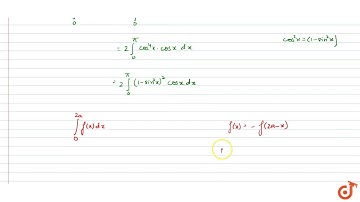 0 0
= 2 ∫₀^π cos⁴x · cosx dx cos²x = (1-sin²x)
= 2 ∫₀^π (1-sin²x)² cosx dx
∫₀^2a f(x) dx f(x) = - f(2a-x)